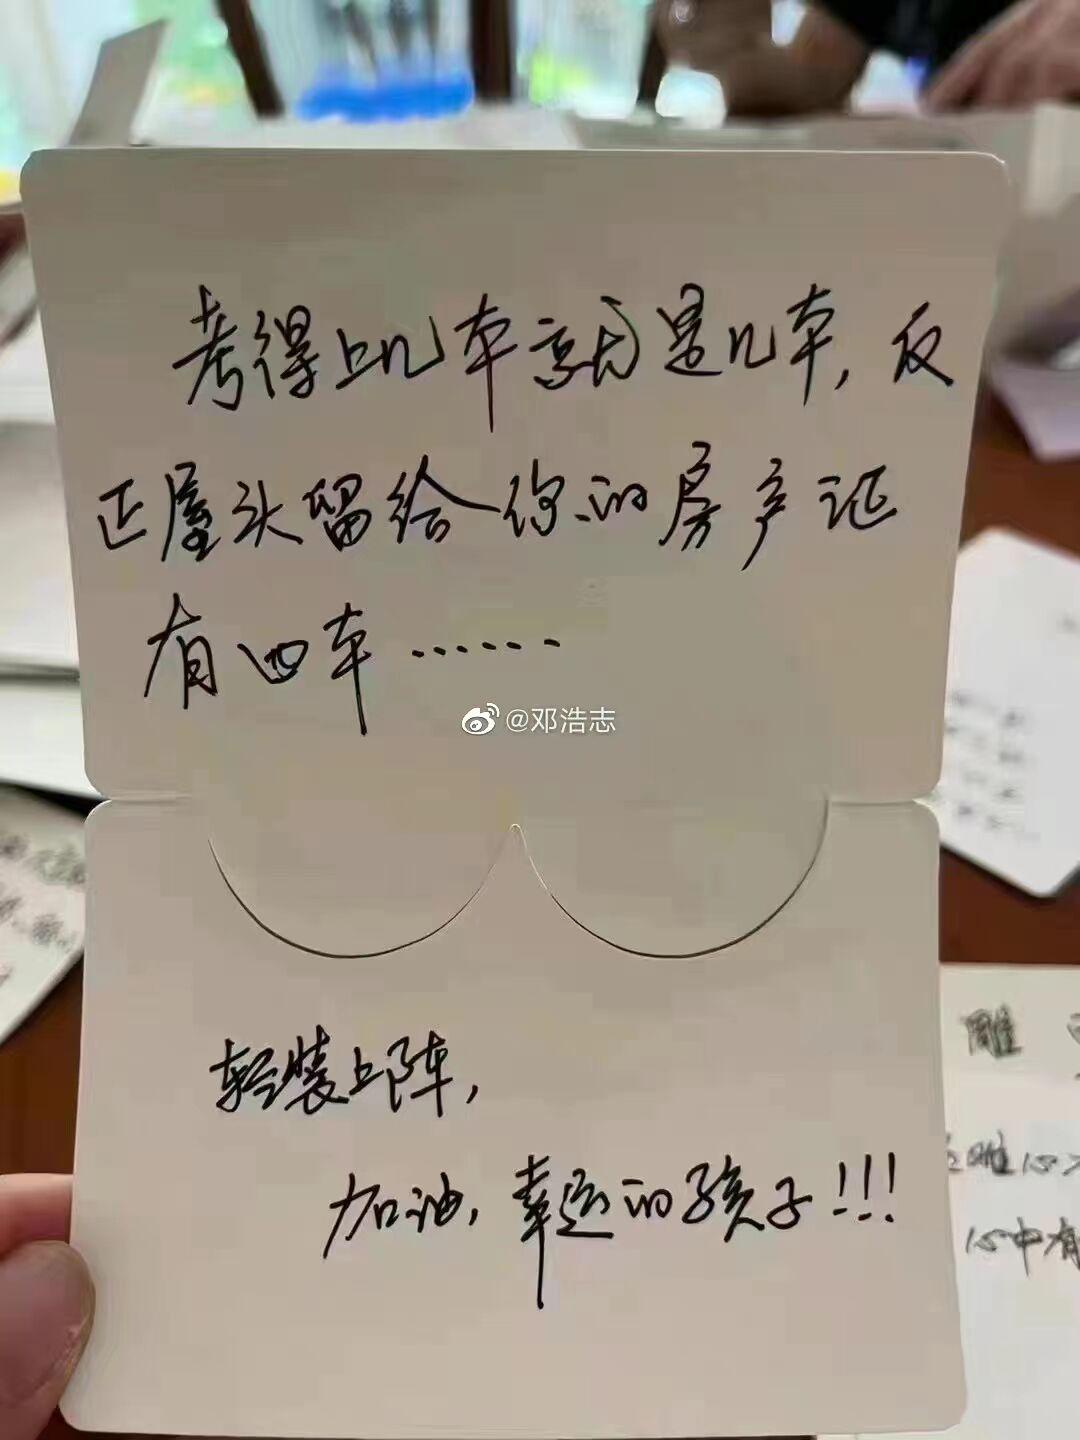 考得上几本就是几本，反
正屋头留给你的房产证
有四本……
@邓浩志
轻装上阵，
加油，幸运的孩子!!!
雕
心中有